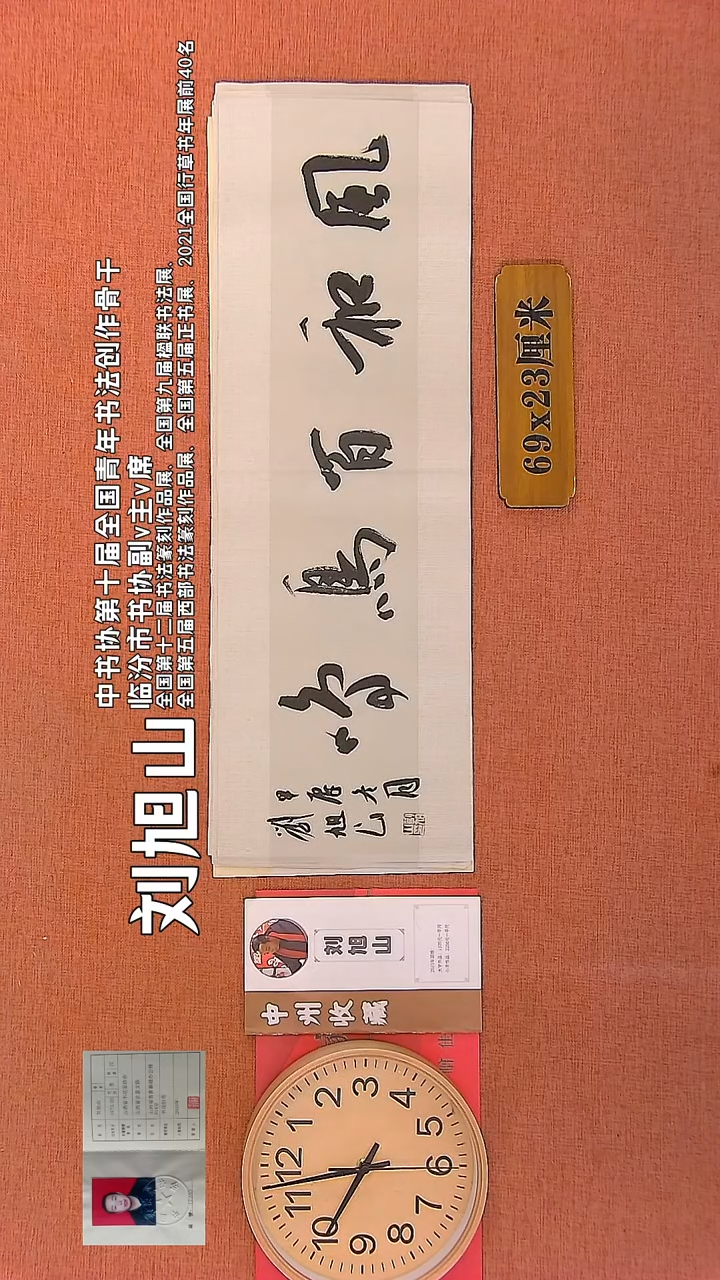 中书协第十届全国青年书法创作骨干
临汾市书协副v主v席
全国第十二届书法篆刻作品展、全国第九届楹联书法展、
全国第五届西部书法篆刻作品展、全国第五届正书展、2021全国行草书年展前40名
刘旭山
風和百鳥
刘旭山
刘旭山
中州收藏
69x23厘米
12
1
2
3
4
5
6
7
8
9
10
11